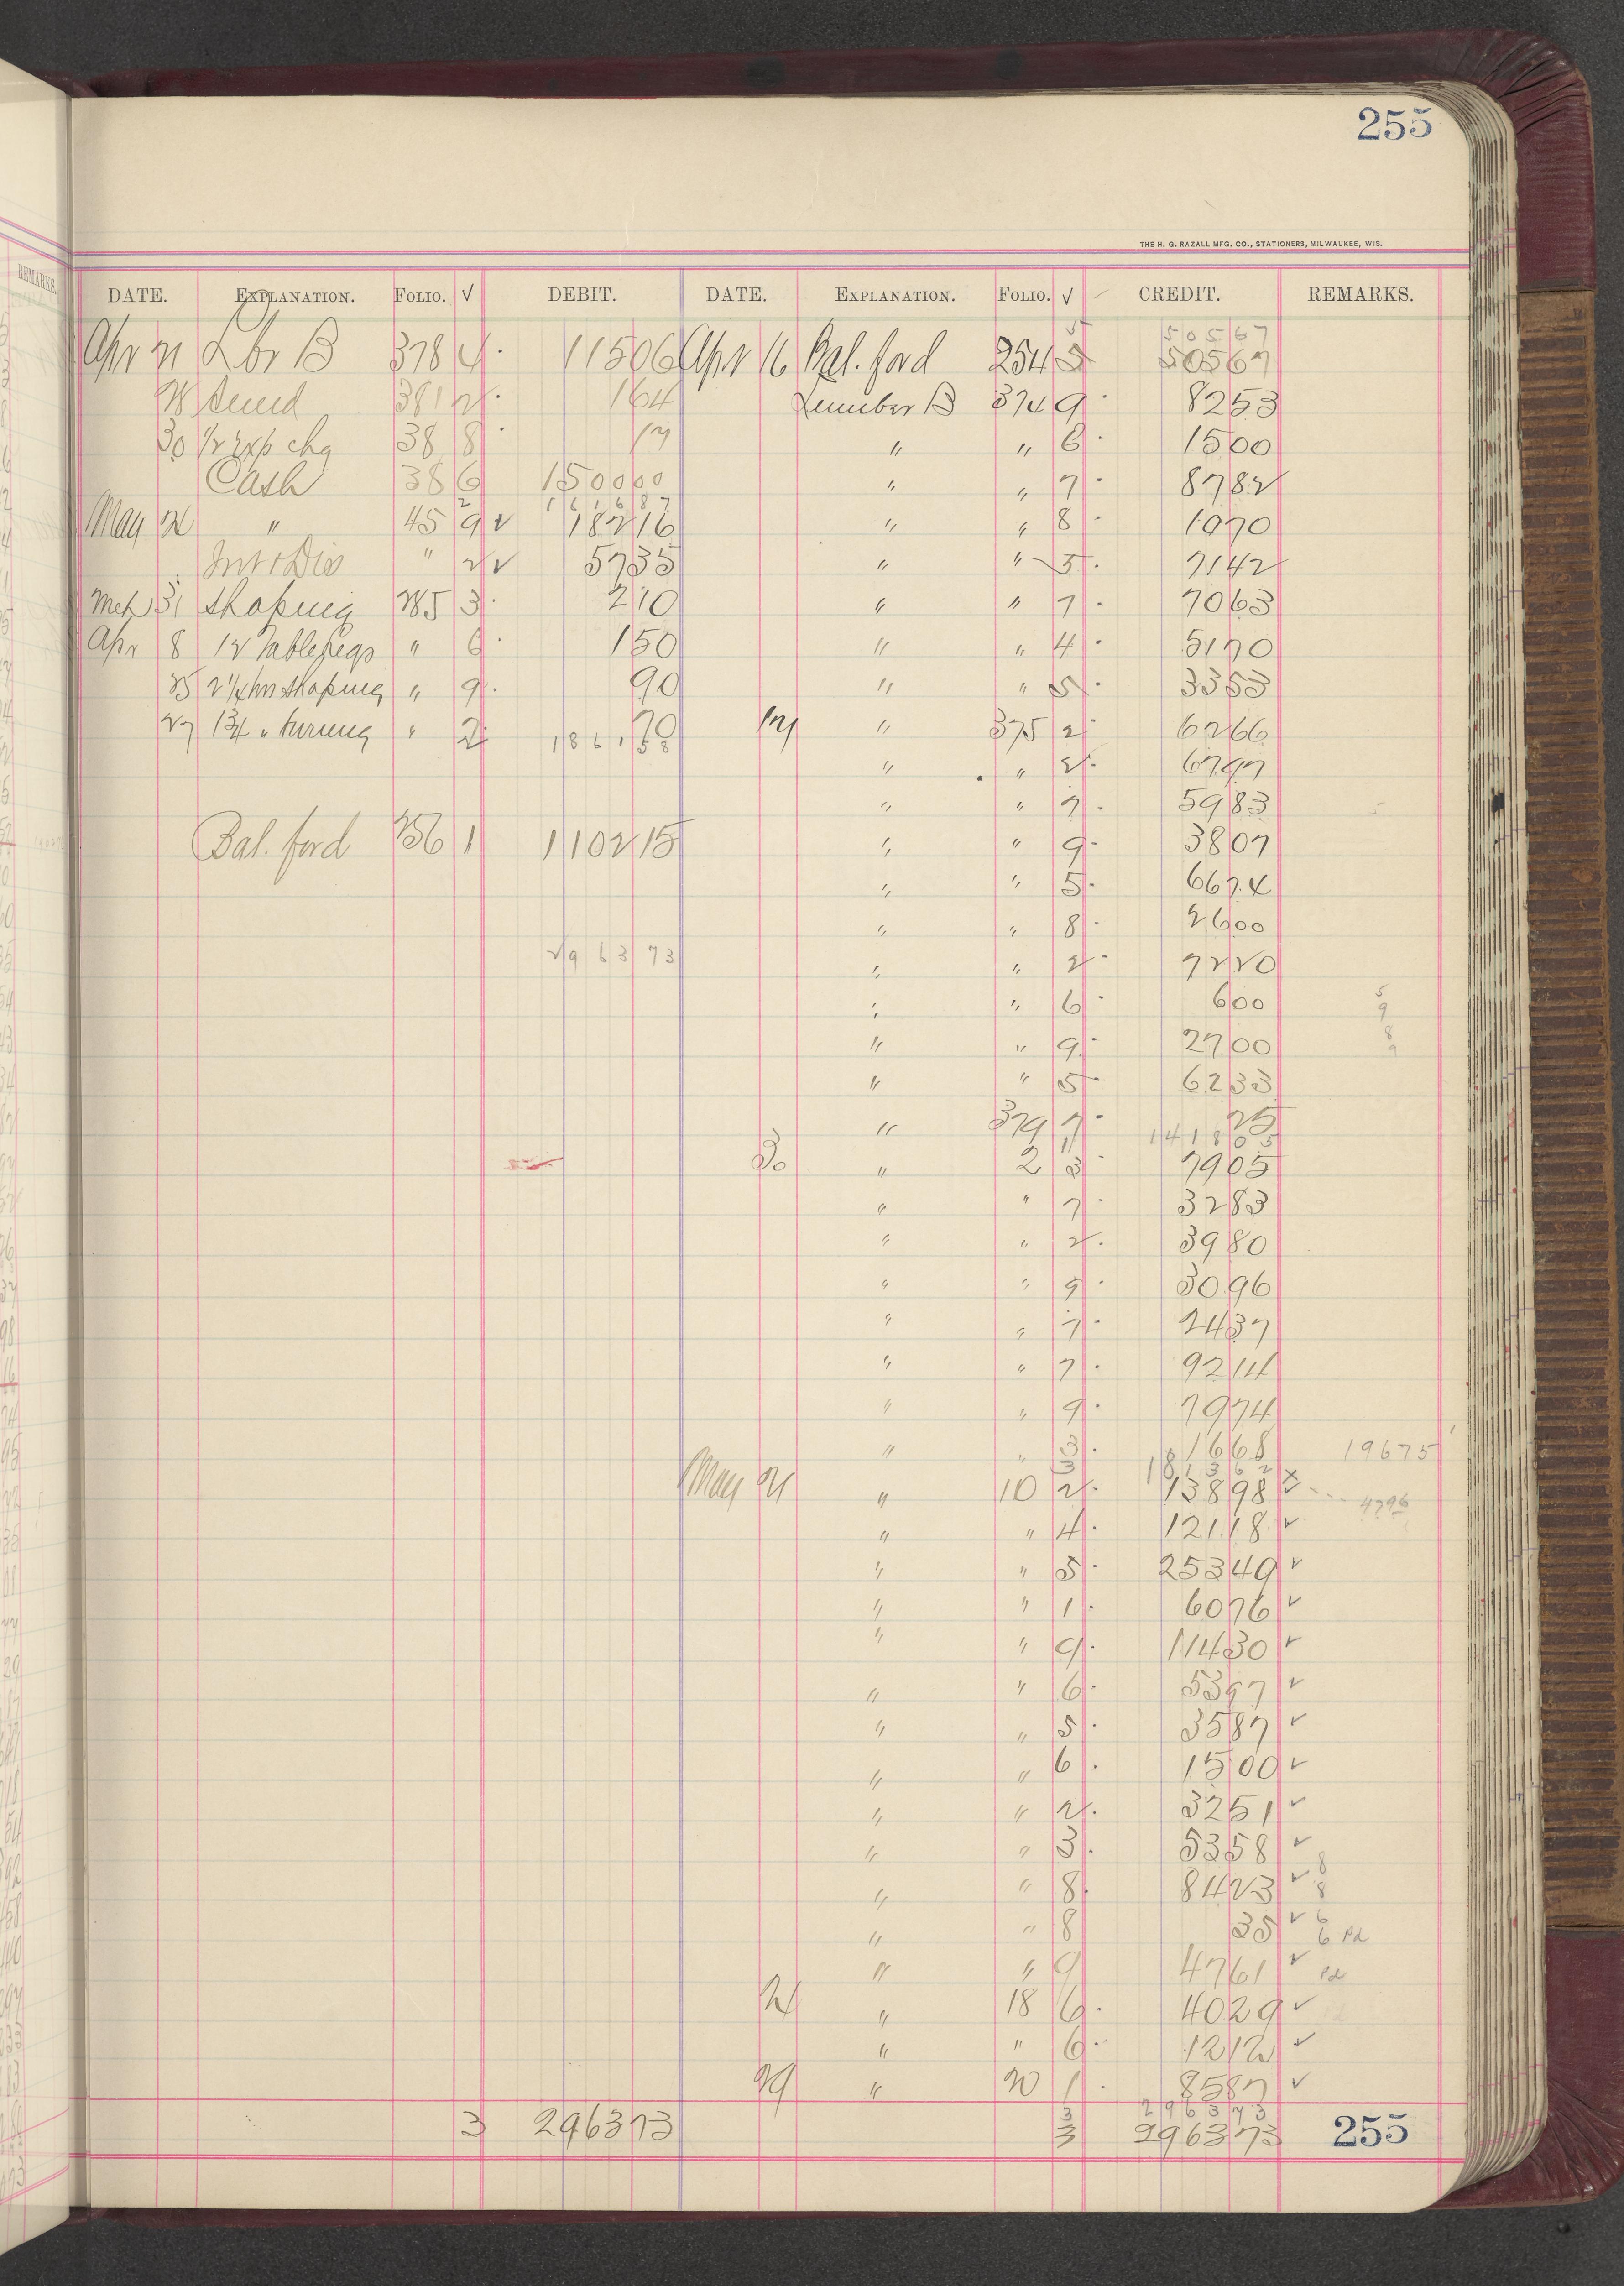 255
THE H. G. RAZALL MFG. CO., STATIONERS, MILWAUKEE, WIS.
REMARKS.
DATE. EXPLANATION. FOLIO. √ DEBIT. DATE. EXPLANATION. FOLIO. √ CREDIT. REMARKS.
5 50567
Apr 21 Lbr B 378 4 11506 Apr 16 Bal. ford 254 5 50567
28 381 2 164 Lumber B 374 9 8253
30 1/2 Exp chg 38 8 17 " " 6 1500
Cash 38 6 150000 " " 7 8782
2 161687
May 21 " 45 9 √ 18216 " " 8 1070
Int & Dis " 2 √ 5735 " " 5 7142
Mch 31 Shaping 285 3 210 " " 7 7063
Apr 8 12 Table Legs " 6 150 " " 4 5170
25 2 1/4 hrs shaping " 9 90 " " 5 3353
27 1 3/4 " turning " 2 70 17 " 375 2 6266
186158
" " 2 6797
" " 7 5983
Bal. ford 256 1 110215 " " 9 3807
" " 5 6674
" " 8 2600
296373
" " 2 7220
" " 6 600 5
9
" " 9 2700 8
9
" " 5 6233
" 379 7 25
1 141805
30 " 2 3 7905
" " 7 3283
" " 2 3980
" " 9 3096
" " 7 2437
" " 7 9214
" " 9 7974
" " 3 1668 19675
3 181362
May 21 " 10 2 13898 4796
" " 4 12118 √
" " 5 25349 √
" " 1 6076 √
" " 9 11430 √
" " 6 5397 √
" " 5 3587 √
" " 6 1500 √
" " 2 3251 √
" " 3 5358 √
8
" " 8 8423 √ 8
" " 8 35 √ 6
6 Pd
" " 9 4761 √ Pd
" 18 6 4029 √
" " 6 1212 √
29 " 20 1 8587 √
3 296373
3 296373 3 296373 255